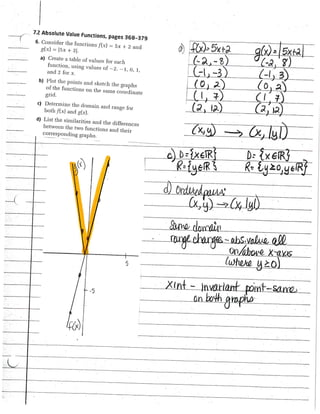 7.2 Absolute Value Functions, pages 368–379
6. Consider the functions f(x) = 5x + 2 and
g(x) = |5x + 2|.
a) Create a table of values for each
function, using values of −2, −1, 0, 1,
and 2 for x.
b) Plot the points and sketch the graphs
of the functions on the same coordinate
grid.
c) Determine the domain and range for
both f(x) and g(x).
d) List the similarities and the differences
between the two functions and their
corresponding graphs.
a) f(x)=5x+2 g(x)=|5x+2|
(-2,-8) (-2, 8)
(-1,-3) (-1, 3)
(0, 2) (0, 2)
(1, 7) (1, 7)
(2, 12) (2, 12)
(x,y) → (x,|y|)
c) D={x∈R} D={x∈R}
R={y∈R} R={y≥0,y∈R}
d) Ordered pairs:
(x,y)→(x,|y|)
Same domain
range changes - abs.value all
on/above x-axis
(where y≥0)
x int - invariant point-same
on both graphs
g(x)
5
-5
f(x)